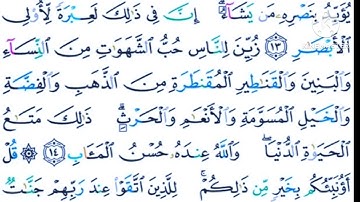 يُؤَيِّدُ بِنَصْرِهِۦ مَن يَشَآءُۗ إِنَّ فِي ذَٰلِكَ لَعِبْرَةً لِّأُوْلِي
ٱلْأَبْصَٰرِ ﴿١٣﴾ زُيِّنَ لِلنَّاسِ حُبُّ ٱلشَّهَوَٰتِ مِنَ ٱلنِّسَآءِ
وَٱلْبَنِينَ وَٱلْقَنَٰطِيرِ ٱلْمُقَنطَرَةِ مِنَ ٱلذَّهَبِ وَٱلْفِضَّةِ
وَٱلْخَيْلِ ٱلْمُسَوَّمَةِ وَٱلْأَنْعَٰمِ وَٱلْحَرْثِۗ ذَٰلِكَ مَتَٰعُ
ٱلْحَيَوٰةِ ٱلدُّنْيَاۖ وَٱللَّهُ عِندَهُۥ حُسْنُ ٱلْمَـَٔابِ ﴿١٤﴾ ۞ قُلْ
أَؤُنَبِّئُكُم بِخَيْرٍ مِّن ذَٰلِكُمْۚ لِلَّذِينَ ٱتَّقَوْا۟ عِندَ رَبِّهِمْ جَنَّٰتٌ